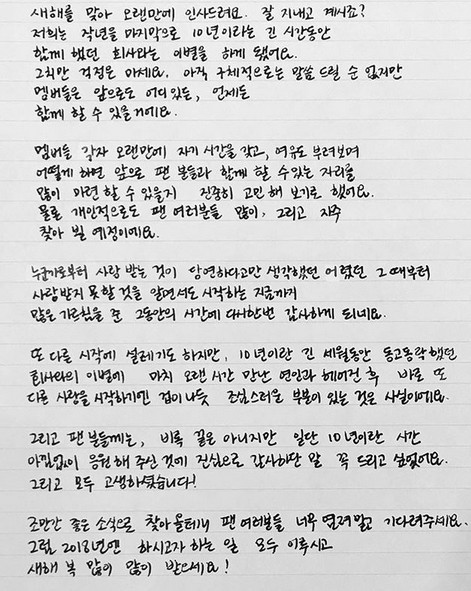 새해를 맞아 오랜만에 인사드려요. 잘 지내고 계시죠?
저희는 작년을 마지막으로 10년이라는 긴 시간동안
함께 했던 회사와는 이별을 하게 됐어요.
그치만 걱정은 마세요. 아직 구체적으로는 말씀 드릴 순 없지만
멤버들은 앞으로도 어디있든, 언제든
함께 할 수 있을거에요.
멤버들 각자 오랜만에 자기 시간을 갖고, 여유도 부려보며
어떻게 하면 앞으로 팬 분들과 함께 할 수 있는 자리를
많이 마련 할 수 있을지 진중히 고민 해 보기로 했어요.
물론 개인적으로도 팬 여러분들 많이, 그리고 자주
찾아 뵐 예정이에요.
누군가로부터 사랑 받는 것이 당연하다고만 생각했던 어렸던 그 때부터
사랑받지 못할 것을 알면서도 시작하는 지금까지
많은 가르침을 준 그동안의 시간에 다시한번 감사하게 되네요.
또 다른 시작에 설레기도 하지만, 10년이란 긴 세월동안 동고동락했던
회사와의 이별에 마치 오랜 시간 만난 연인과 헤어진 후 바로 또
다른 사랑을 시작하기엔 겁이 나듯 조심스러운 부분이 있는 것은 사실이에요.
그리고 팬 분들께는, 비록 끝은 아니지만 일단 10년이란 시간
아낌없이 응원해 주신 것에 진심으로 감사하단 말 꼭 드리고 싶었어요.
그리고 모두 고생하셨습니다!
조만간 좋은 소식으로 찾아 올테니 팬 여러분들 너무 염려말고 기다려주세요.
그럼 2018년엔 하시고자 하는 일 모두 이루시고
새해 복 많이 많이 받으세요!